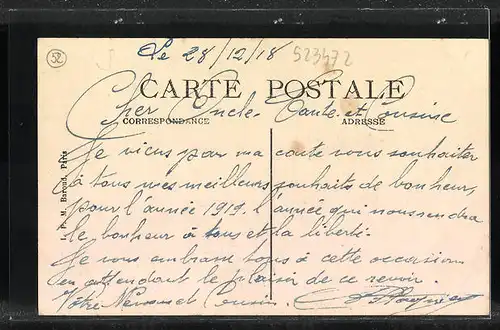 52
Le 28/12/18
523472
CARTE POSTALE
Cher Oncle. Tante. et Cousine
CORRESPONDANCE
ADRESSE
Je viens par ma carte vous souhaiter
à tous mes meilleurs souhaits de bonheur,
pour l'année 1919. l'année qui nous rendra
le bonheur à tous et la liberté.
Je vous embrasse tous à cette occasion
en attendant le plaisir de ce revoir.
Votre Neveu et Cousin.